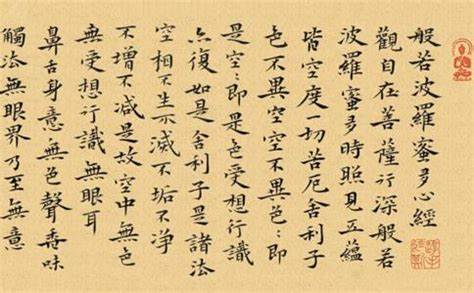 般若波羅蜜多心經
觀自在菩薩行深般若
波羅蜜多時照見五蘊
皆空度一切苦厄舍利子
色不異空空不異色〻即
是空〻即是色受想行識
亦復如是舍利子是諸法
空相不生不滅不垢不淨
不增不減是故空中無色
無受想行識無眼耳
鼻舌身意無色聲香味
觸法無眼界乃至無意